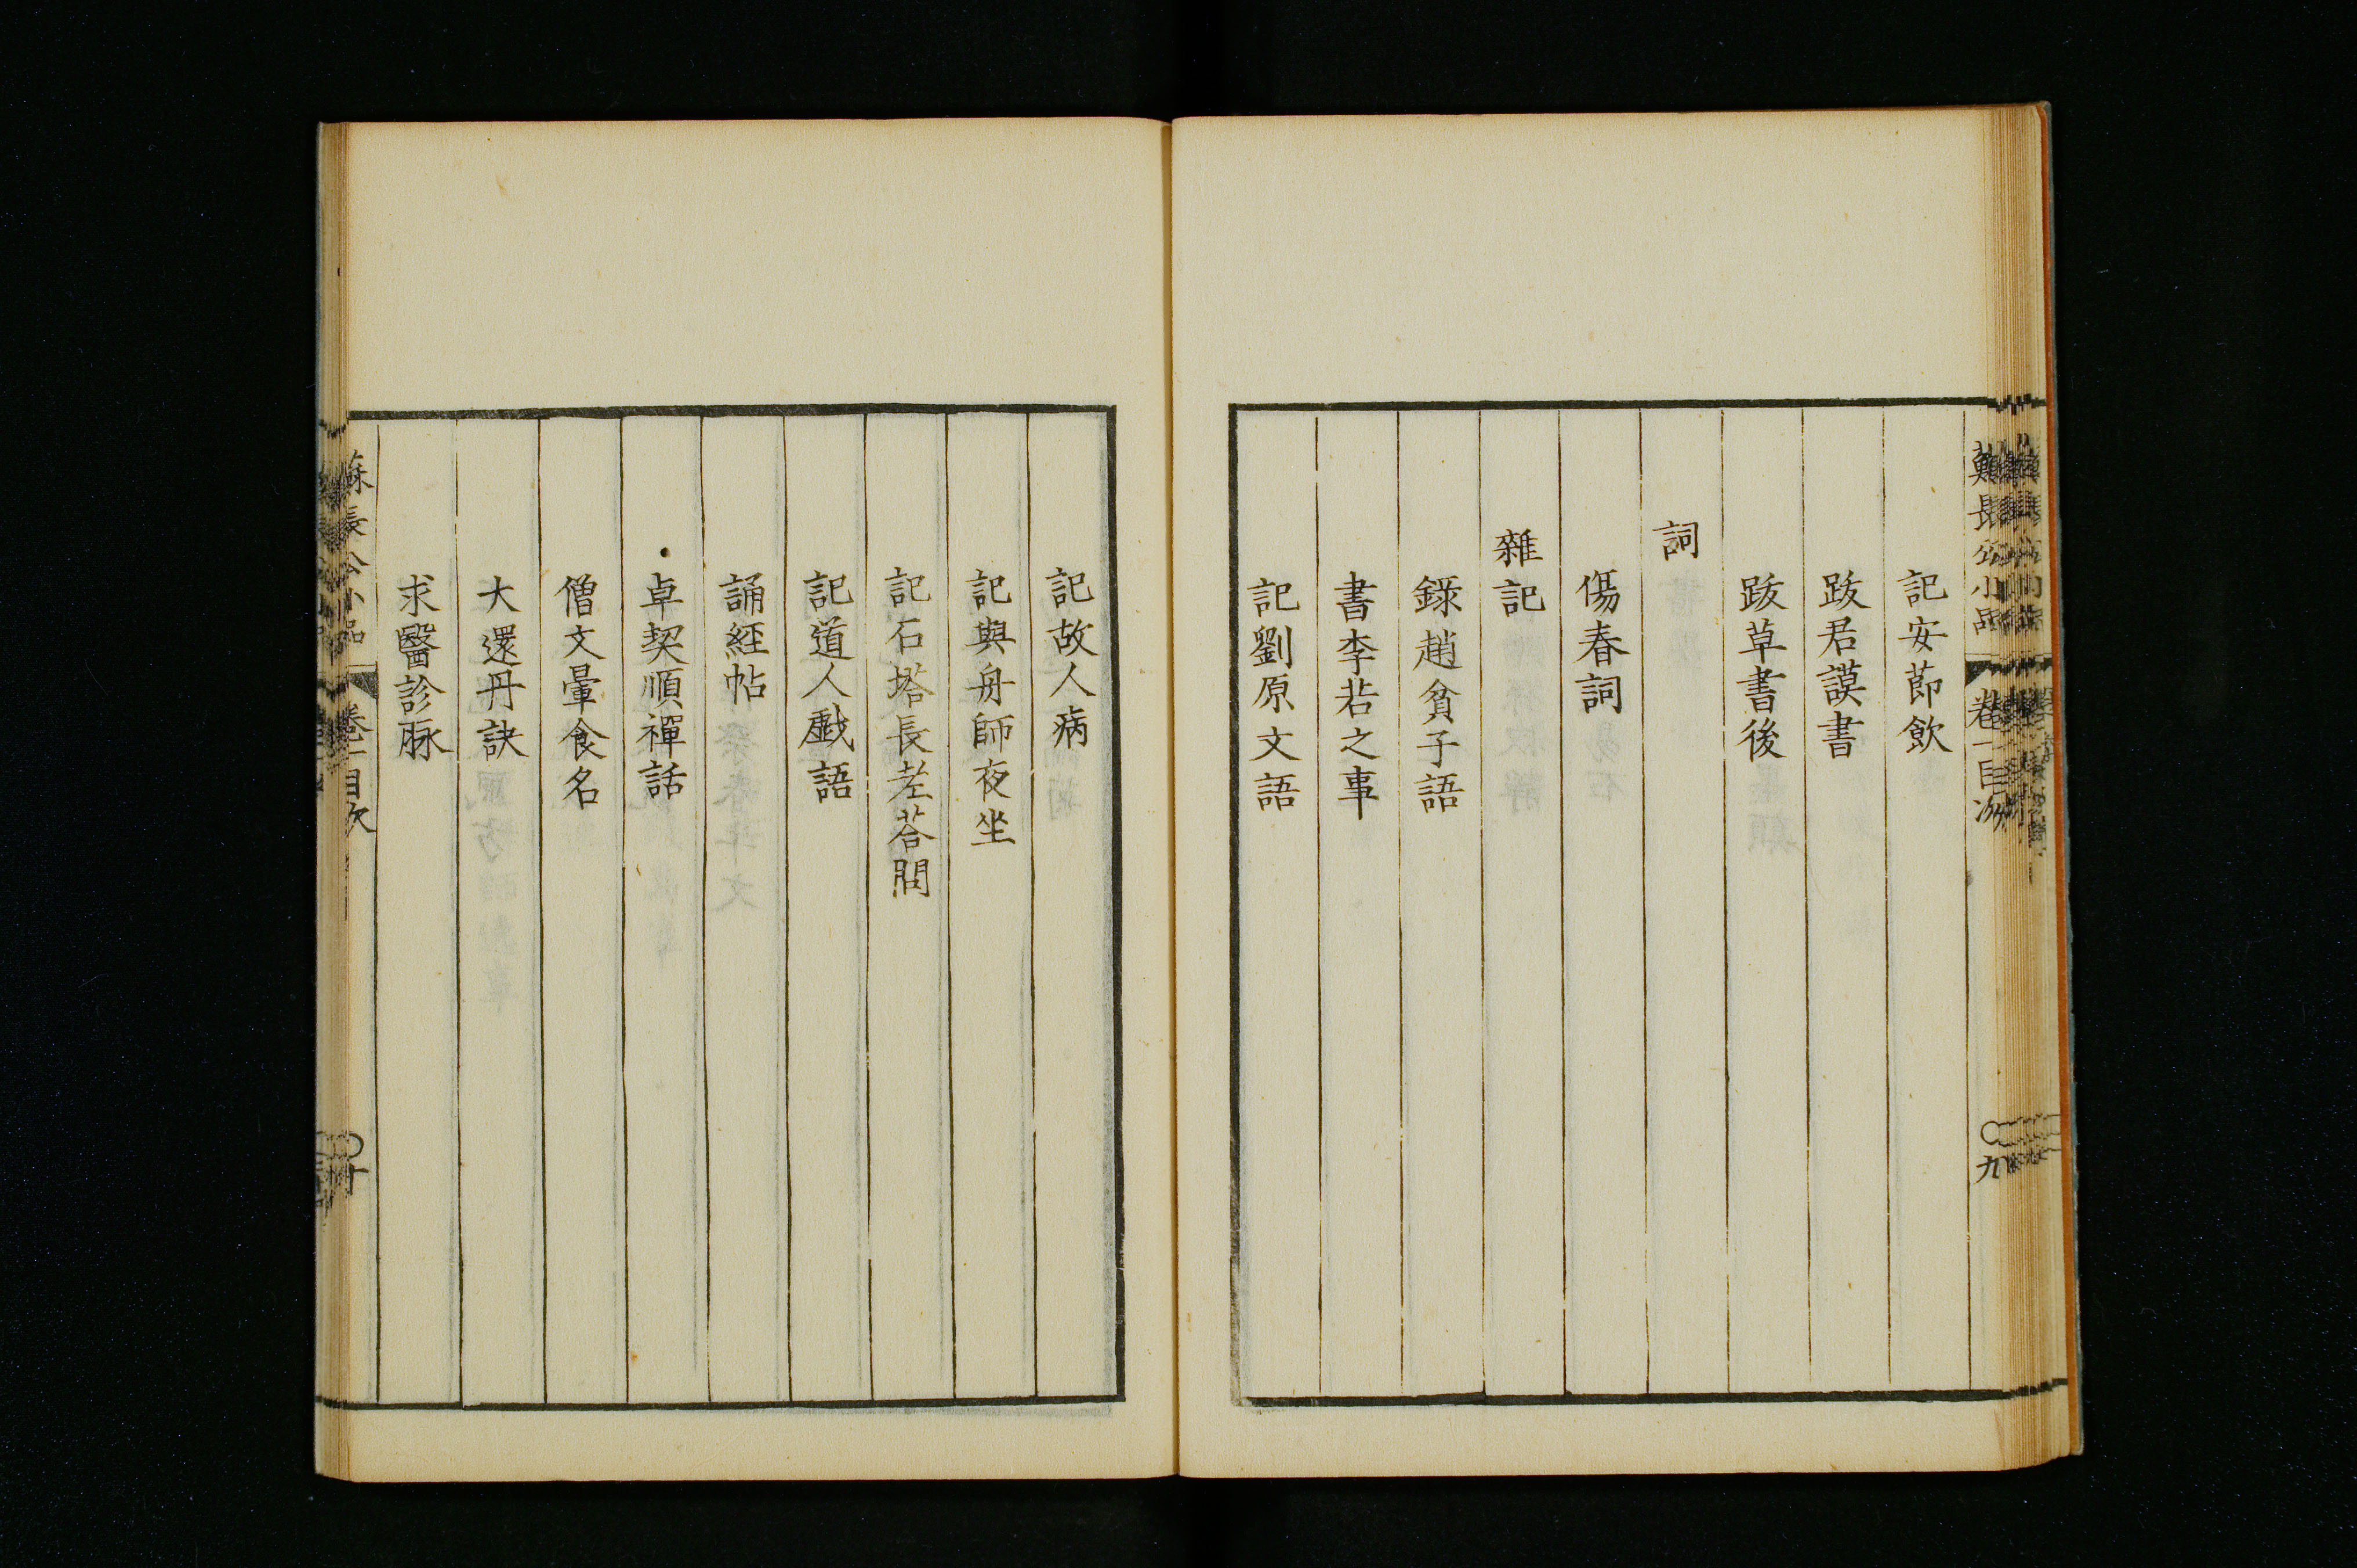 蘇長公小品
卷一目次
九
記安莭飲
跋君謨書
跋草書後
詞
傷春詞
雜記
錄趙貧子語
書李若之事
記劉原文語
記故人病
記與舟師夜坐
記石塔長老荅問
記道人戲語
誦經帖
卓契順禪話
僧文暈食名
大還丹訣
求醫診脉
蘇長公小品
卷一目次
十